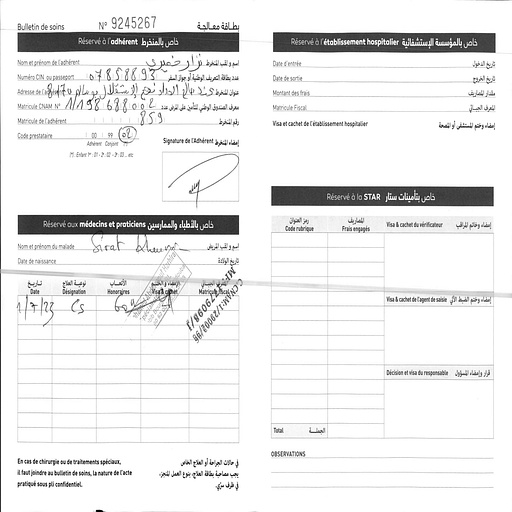 Bulletin de soins N° 9245267 بطاقة معالجة
Réservé à l'adhérent خاص بالمنخرط
Nom et prénom de l'adhérent اسم و لقب المنخرط
Numéro CIN ou passeport 07858893 عدد بطاقة التعريف الوطنية أو جواز السفر
Adresse de l'adhérent 8170 عنوان المنخرط
Matricule CNAM معرف الصندوق الوطني للتأمين على المرض
Matricule de l'adhérent 859 رقم المنخرط
Code prestataire 00 99 02
Adhérent Conjoint (*)
(*) : Enfant 1er : 01 - 2 : 02 - 3 : 03 ... etc
Signature de l'Adhérent إمضاء المنخرط
Réservé aux médecins et praticiens خاص بالأطباء والممارسين
Nom et prénom du malade اسم و لقب المريض
Date de naissance تاريخ الولادة
تاريخ نوعية العلاج الأتعاب
Date Désignation Honoraires Visa & cachet
1/7/23 CS
En cas de chirurgie ou de traitements spéciaux,
il faut joindre au bulletin de soins, la nature de l'acte
pratiqué sous pli confidentiel.
في حالات الجراحة أو العلاج الخاص
يجب مصاحبة بطاقة العلاج، بنوع العمل المنجز،
في ظرف سري.
Réservé à l'établissement hospitalier خاص بالمؤسسة الإستشفائية
Date d'entrée تاريخ الدخول
Date de sortie تاريخ الخروج
Montant des frais مقدار المصاريف
Matricule Fiscal المعرف الجبائي
Visa et cachet de l'établissement hospitalier إمضاء وختم المستشفى أو المصحة
Réservé à la STAR خاص بتأمينات ستار
رمز العنوان المصاريف
Code rubrique Frais engagés Visa & cachet du vérificateur إمضاء وخاتم المراقب
Visa & cachet de l'agent de saisie
Décision et visa du responsable قرار وإمضاء المسؤول
Total الجملة
OBSERVATIONS